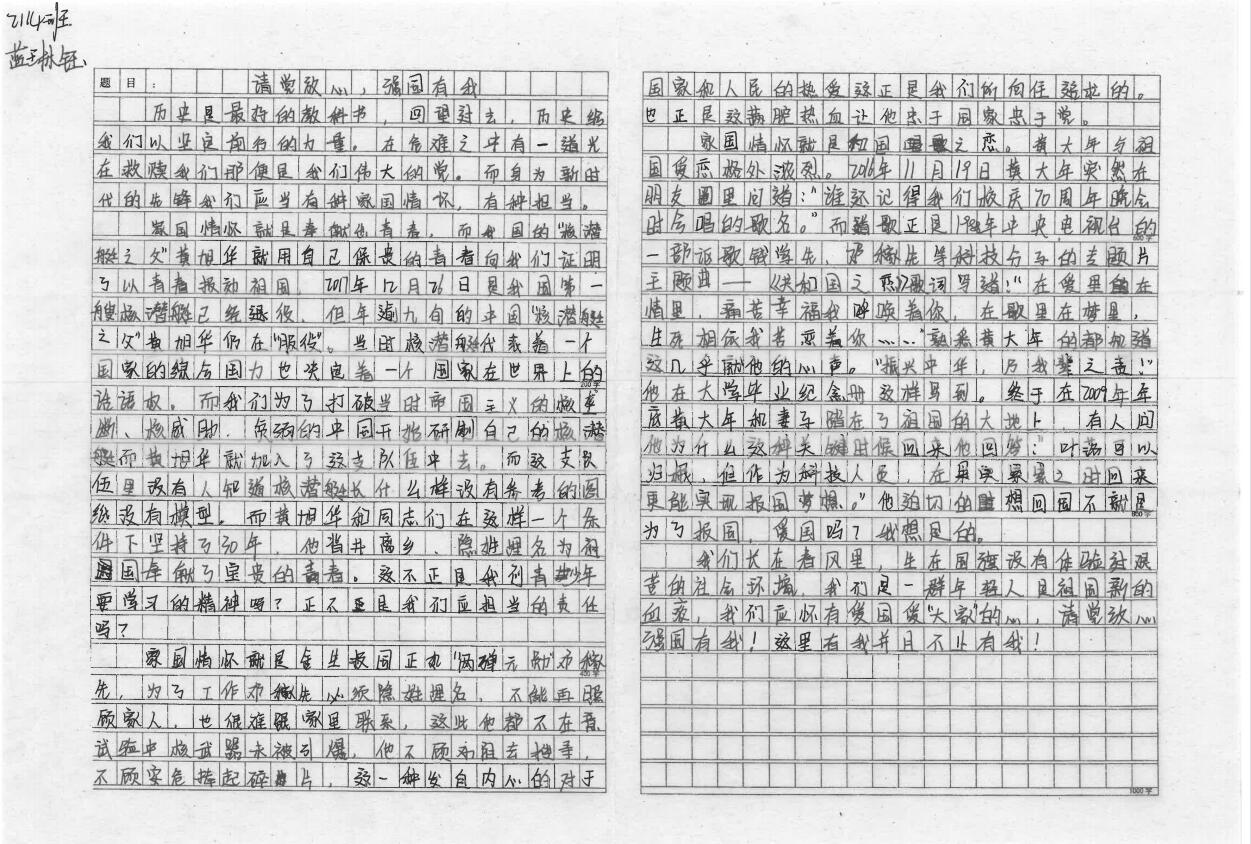 班
蓝
题目：请党放心，强国有我
历史是最好的教科书，回望过去，历史给
我们以坚定前行的力量。在危难之中有一道光
在救赎我们那便是我们伟大的党。而身为新时
代的先锋我们应当有种家国情怀，有种担当。
家国情怀就是奉献他青春，而我国的“核潜
艇之父”黄旭华就用自己保贵的青春向我们证明
了以青春报効祖国。2017年12月26日是我国第一
艘核潜艇已经退役，但年逾九旬的中国“核潜艇
之父”黄旭华仍在“服役”。当时核潜艇代表着一个
国家的综合国力也决定着一个国家在世界上的
200字
话语权。而我们为了打破当时帝国主义的核垄
断、核威胁，贫弱的中国开始研制自己的核潜
艇而黄旭华就加入了这支队伍中去。而这支队
伍里没有人知道核潜艇长什么样没有参考的图
纸没有模型。而黄旭华和同志们在这样一个条
件下坚持了30年，他背井离乡、隐姓埋名为祖
国奉献了宝贵的青春。这不正是我们青少年
要学习的精神吗？正不正是我们应担当的责任
吗？
家国情怀就是舍生报国正如“两弹元勋”邓稼
400字
先，为了工作邓稼先必须隐姓埋名，不能再照
顾家人，也很难跟家里联系，这些他都不在意
试验中核武器未被引爆，他不顾劝阻去搜寻，
不顾安危捧起碎片，这一种发自内心的对于
国家和人民的热爱这正是我们所向往强求的。
也正是这满腔热血让他忠于国家忠于党。
家国情怀就是和国之恋。黄大年与祖
国爱恋极外浓烈。2016年11月19日黄大年突然在
朋友圈里问道：“谁还记得我们校庆70周年晚会
时合唱的歌名。”而首歌正是1988年中央电视台的
600字
一部讴歌钱学生、邓稼先等科技分子的专题片
主题曲——《共和国之恋》歌词写道：“在爱里在
情里，痛苦幸福我呼唤着你，在歌里在梦里，
生死相依我苦恋着你……”熟悉黄大年的都知道
这几乎就他的心声。“振兴中华，乃我辈之责！”
他在大学毕业纪念册这样写到。终于在2009年年
底黄大年和妻子踏在了祖国的大地上，有人问
他为什么这种关键时候回来他回答：“叶落可以
归根，但作为科技人员，在果实累累之时回来
更能实现报国梦想。”他迫切的想回国不就是
800字
为了报国，爱国吗？我想是的。
我们长在春风里，生在国强没有体验过艰
苦的社会环境，我们是一群年轻人是祖国新的
血液，我们应怀有爱国爱“大家”的心，请党放心
强国有我！这里有我并且不止有我！
1000字